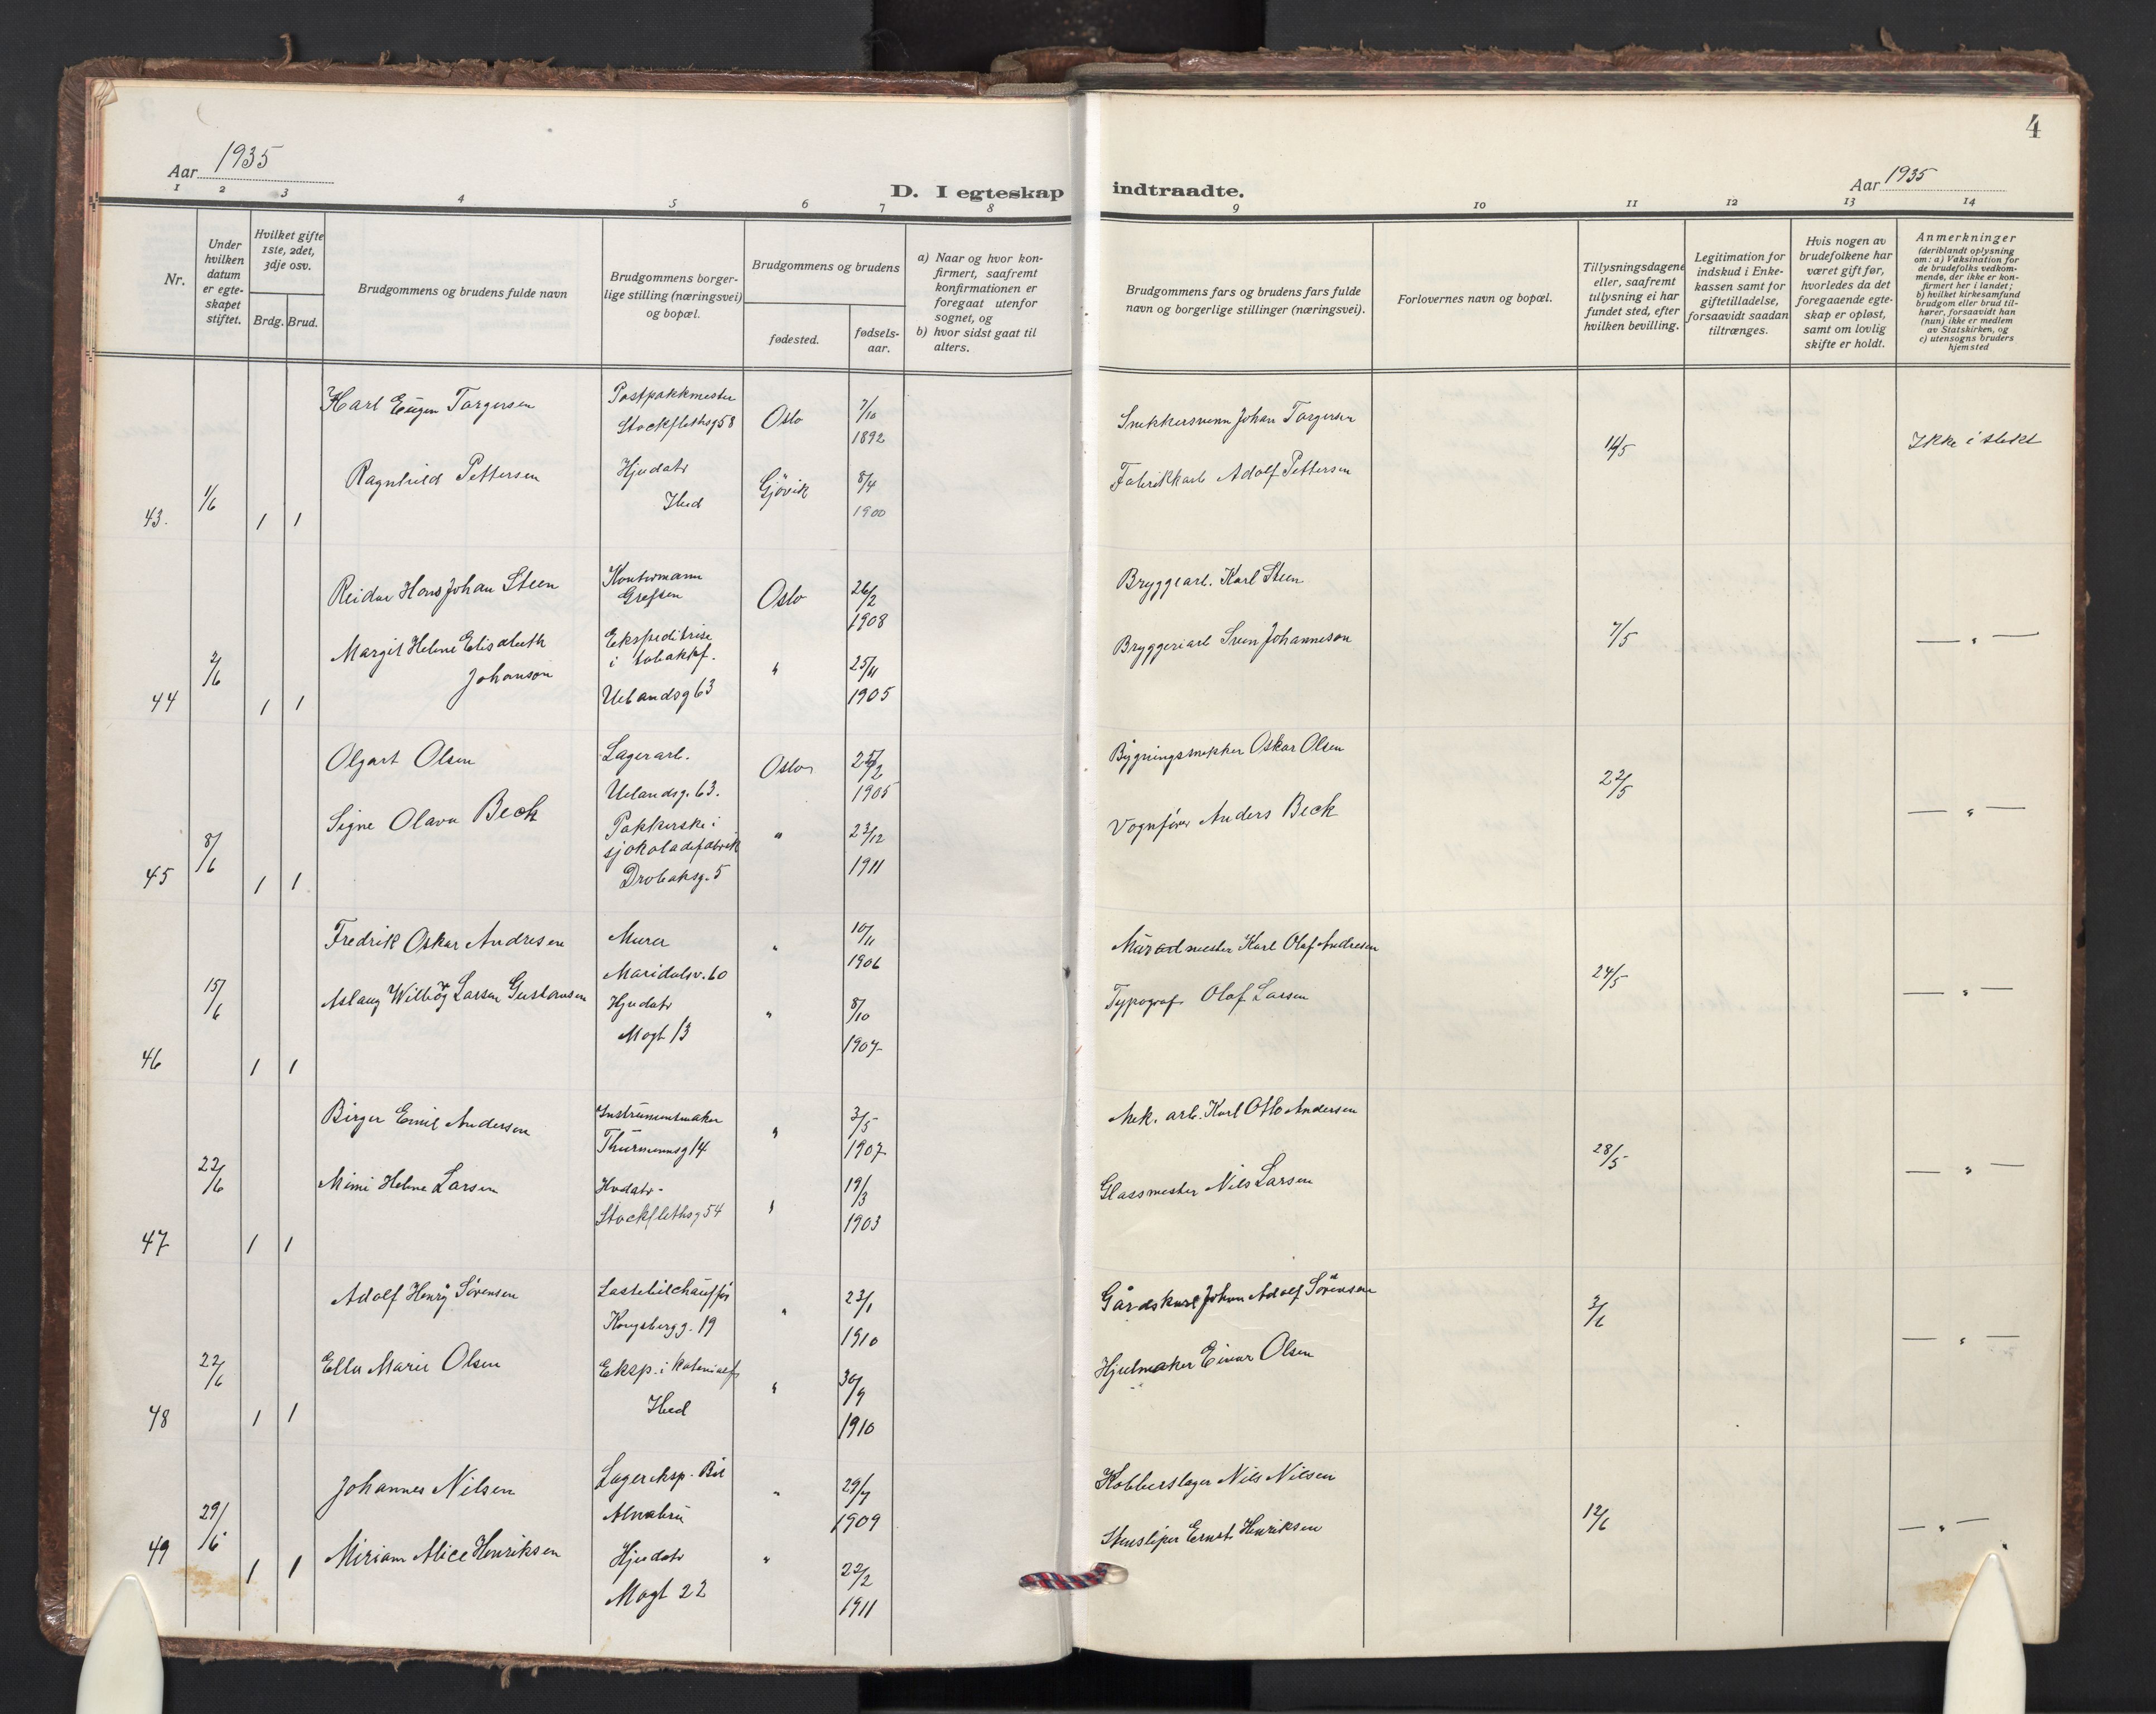 Aar 1935
D. I egteskap
1 2 3 4 5 6 7 8
Nr.
Under hvilken datum er egteskapet stiftet.
Hvilket gifte 1ste, 2det, 3dje osv.
Brdg. Brud.
Brudgommens og brudens fulde navn
Brudgommens borgerlige stilling (næringsvei) og bopæl.
Brudgommens og brudens
fødested.
fødselsaar.
a) Naar og hvor konfirmert, saafremt konfirmationen er foregaat utenfor sognet, og
b) hvor sidst gaat til alters.
43. 1/6 1 1
Karl Eugen Torgersen
Postpakkmester
Stockflethsg 58
Oslo
7/10
1892
Ragnhild Pettersen
Hjudatr
Ibid
Gjövik
8/4
1900
44 2/6 1 1
Reidar Hans Johan Steen
Kontormann
Grefsen
Oslo
26/2
1908
Margit Helene Elisabeth
Johanson
Ekspeditrise
i tobakkf.
Uelandsg 63
"
25/11
1905
45 8/6 1 1
Olgart Olsen
Lagerarb.
Uelandsg. 63.
Oslo
25/2
1905
Signe Olava Beck
Pakkerske i
sjokoladefabrik
Drobaksg. 5
"
23/12
1911
46 15/6 1 1
Fredrik Oskar Andresen
Murer
Maridalsv. 60
"
10/11
1906
Aslaug Wilbög Larsen Gustavsen
Hjudatr
Mogt 13
"
8/10
1907
47 22/6 1 1
Birger Emil Andersen
Instrumentmaker
Thurmannsg 14
"
3/5
1907
Mimi Helene Larsen
Hvdatr.
Stockflethsg 54
"
19/3
1903
48 22/6 1 1
Adolf Henry Sörensen
Lastebilchaufför
Kongsbergg. 19
"
23/1
1910
Ella Marie Olsen
Eksp. i kolonialf
Ibid
"
30/9
1910
49 29/6 1 1
Johannes Nilsen
Lagereksp. Bil
Alnabru
"
29/7
1909
Miriam Alice Henriksen
Hjudatr
Mogt 22
"
22/2
1911
4
Aar 1935
indtraadte.
9 10 11 12 13 14
Brudgommens fars og brudens fars fulde navn og borgerlige stillinger (næringsvei).
Forlovernes navn og bopæl.
Tillysningsdagene eller, saafremt tillysning ei har fundet sted, efter hvilken bevilling.
Legitimation for indskud i Enkekassen samt for giftetilladelse, forsaavidt saadan tiltrænges.
Hvis nogen av brudefolkene har været gift før, hvorledes da det foregaaende egteskap er opløst, samt om lovlig skifte er holdt.
Anmerkninger
(deriblandt oplysning om: a) Vaksination for de brudefolks vedkommende, der ikke er konfirmert her i landet;
b) hvilket kirkesamfund brudgom eller brud tilhører, forsaavidt han (hun) ikke er medlem av Statskirken, og
c) utensogns bruders hjemsted
Snekkersvenn Johan Torgersen
Fabrikkarb Adolf Pettersen
14/5
Ikke i slekt
Bryggearb. Karl Steen
Bryggeriarb Sven Johanneson
7/5
— " —
Bygningssnekker Oskar Olsen
Vognfører Anders Beck
22/5
— " —
Murmester Karl Olaf Andresen
Typograf Olaf Larsen
24/5
— " —
Mek. arb. Karl Otto Andersen
Glassmester Nils Larsen
28/5
— " —
Gårdskarl Johan Adolf Sörensen
Hjulmaker Einar Olsen
3/6
— " —
Kobberslager Nils Nilsen
Stensliper Ernst Henriksen
12/6
— " —